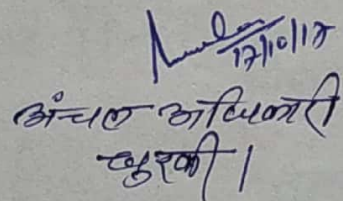 17/10/17
अंचल अधिकारी
धुरकी।